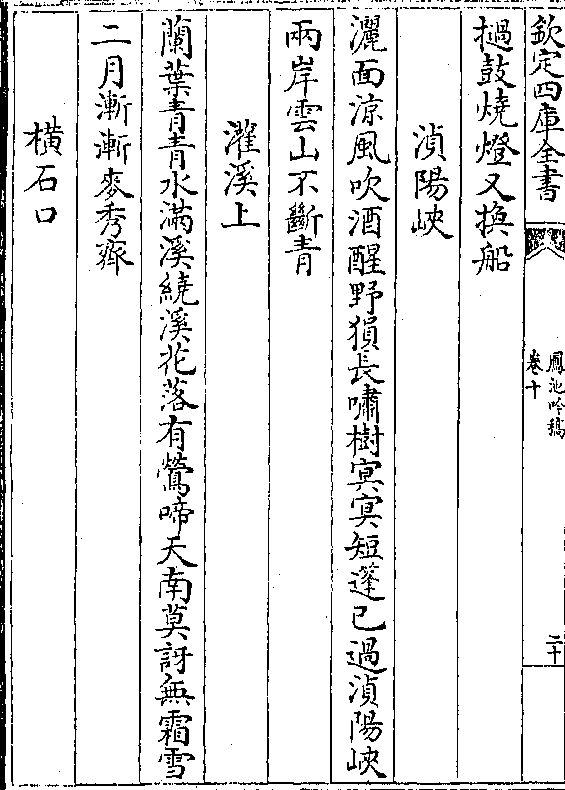 欽定四庫全書
鳳池吟稿
卷十
二十
撾鼓燒燈又換船
湞陽峽
灑面涼風吹酒醒野猿長嘯樹冥冥短蓬已過湞陽峽
兩岸雲山不斷青
濯溪上
蘭葉青青水滿溪繞溪花落有鶯啼天南莫訝無霜雪
二月漸漸麥秀齊
橫石口